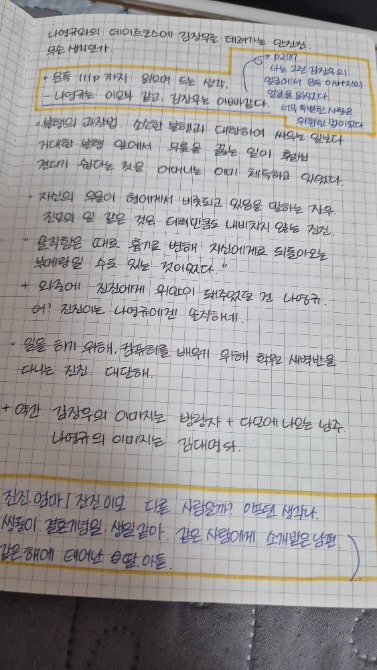 나영규와의 데이트코스에 김장우를 데려가는 안진진.
무슨 생각일까.
p217
나는 그런 김장우의
얼굴에서 문득 아버지의
얼굴을 읽었다.
너무 특별한 사람은
위험한 법이었다
• 문득 111p 까지 읽으며 드는 생각.
- 나영규는 이모부 같고, 김장우는 아빠같다.
• 불행의 과장법. 소소한 불행과 대항하여 싸우는 일보다
거대한 불행 앞에서 무릎을 꿇는 일이 훨씬
견디기 쉽다는 것을 어머니는 이미 체득하고 있었다.
• 자신의 우울이 형에게서 비롯되고 있음을 말하는 장우.
진모의 일 같은 것은 터럭만큼도 내비치지 않는 진진.
"솔직함은 때로 흉기로 변해 자신에게로 되돌아오는
부메랑일 수도 있는 것이었다."
+ 와중에 진진에게 위안이 돼주었던 건 나영규.
어? 진진이는 나영규에겐 솔직하네.
• 일을 하기 위해, 컴퓨터를 배우기 위해 학원 새벽반을
다니는 진진. 대단해.
+ 약간 김장우의 이미지는 방랑자 + 다모에 나오는 남주.
나영규의 이미지는 김대영 다.
진진 엄마 / 진진이모 다른 사람일까? 이모텐 생각나.
쌍둥이. 결혼기념일. 생일같아. 같은 사람에게 소개받은 남편.
같은해에 태어난 딸. 아들.